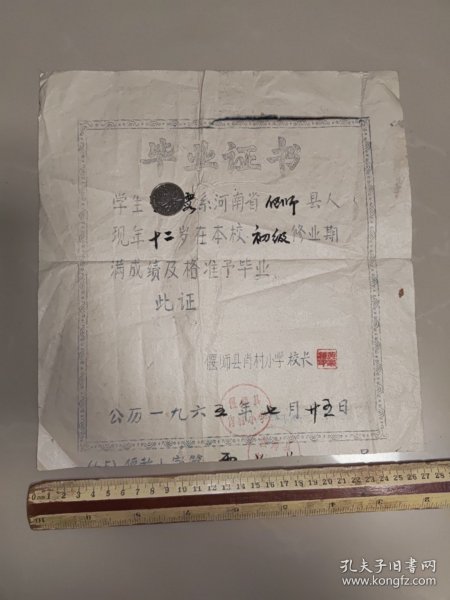 毕业证书
学生 系河南省偃师县人
现年十二岁在本校初级修业期
满成绩及格准予毕业
此证
偃师县肖村小学校长
公历一九六五年七月廿五日
孔夫子旧书网
www.kongfz.com